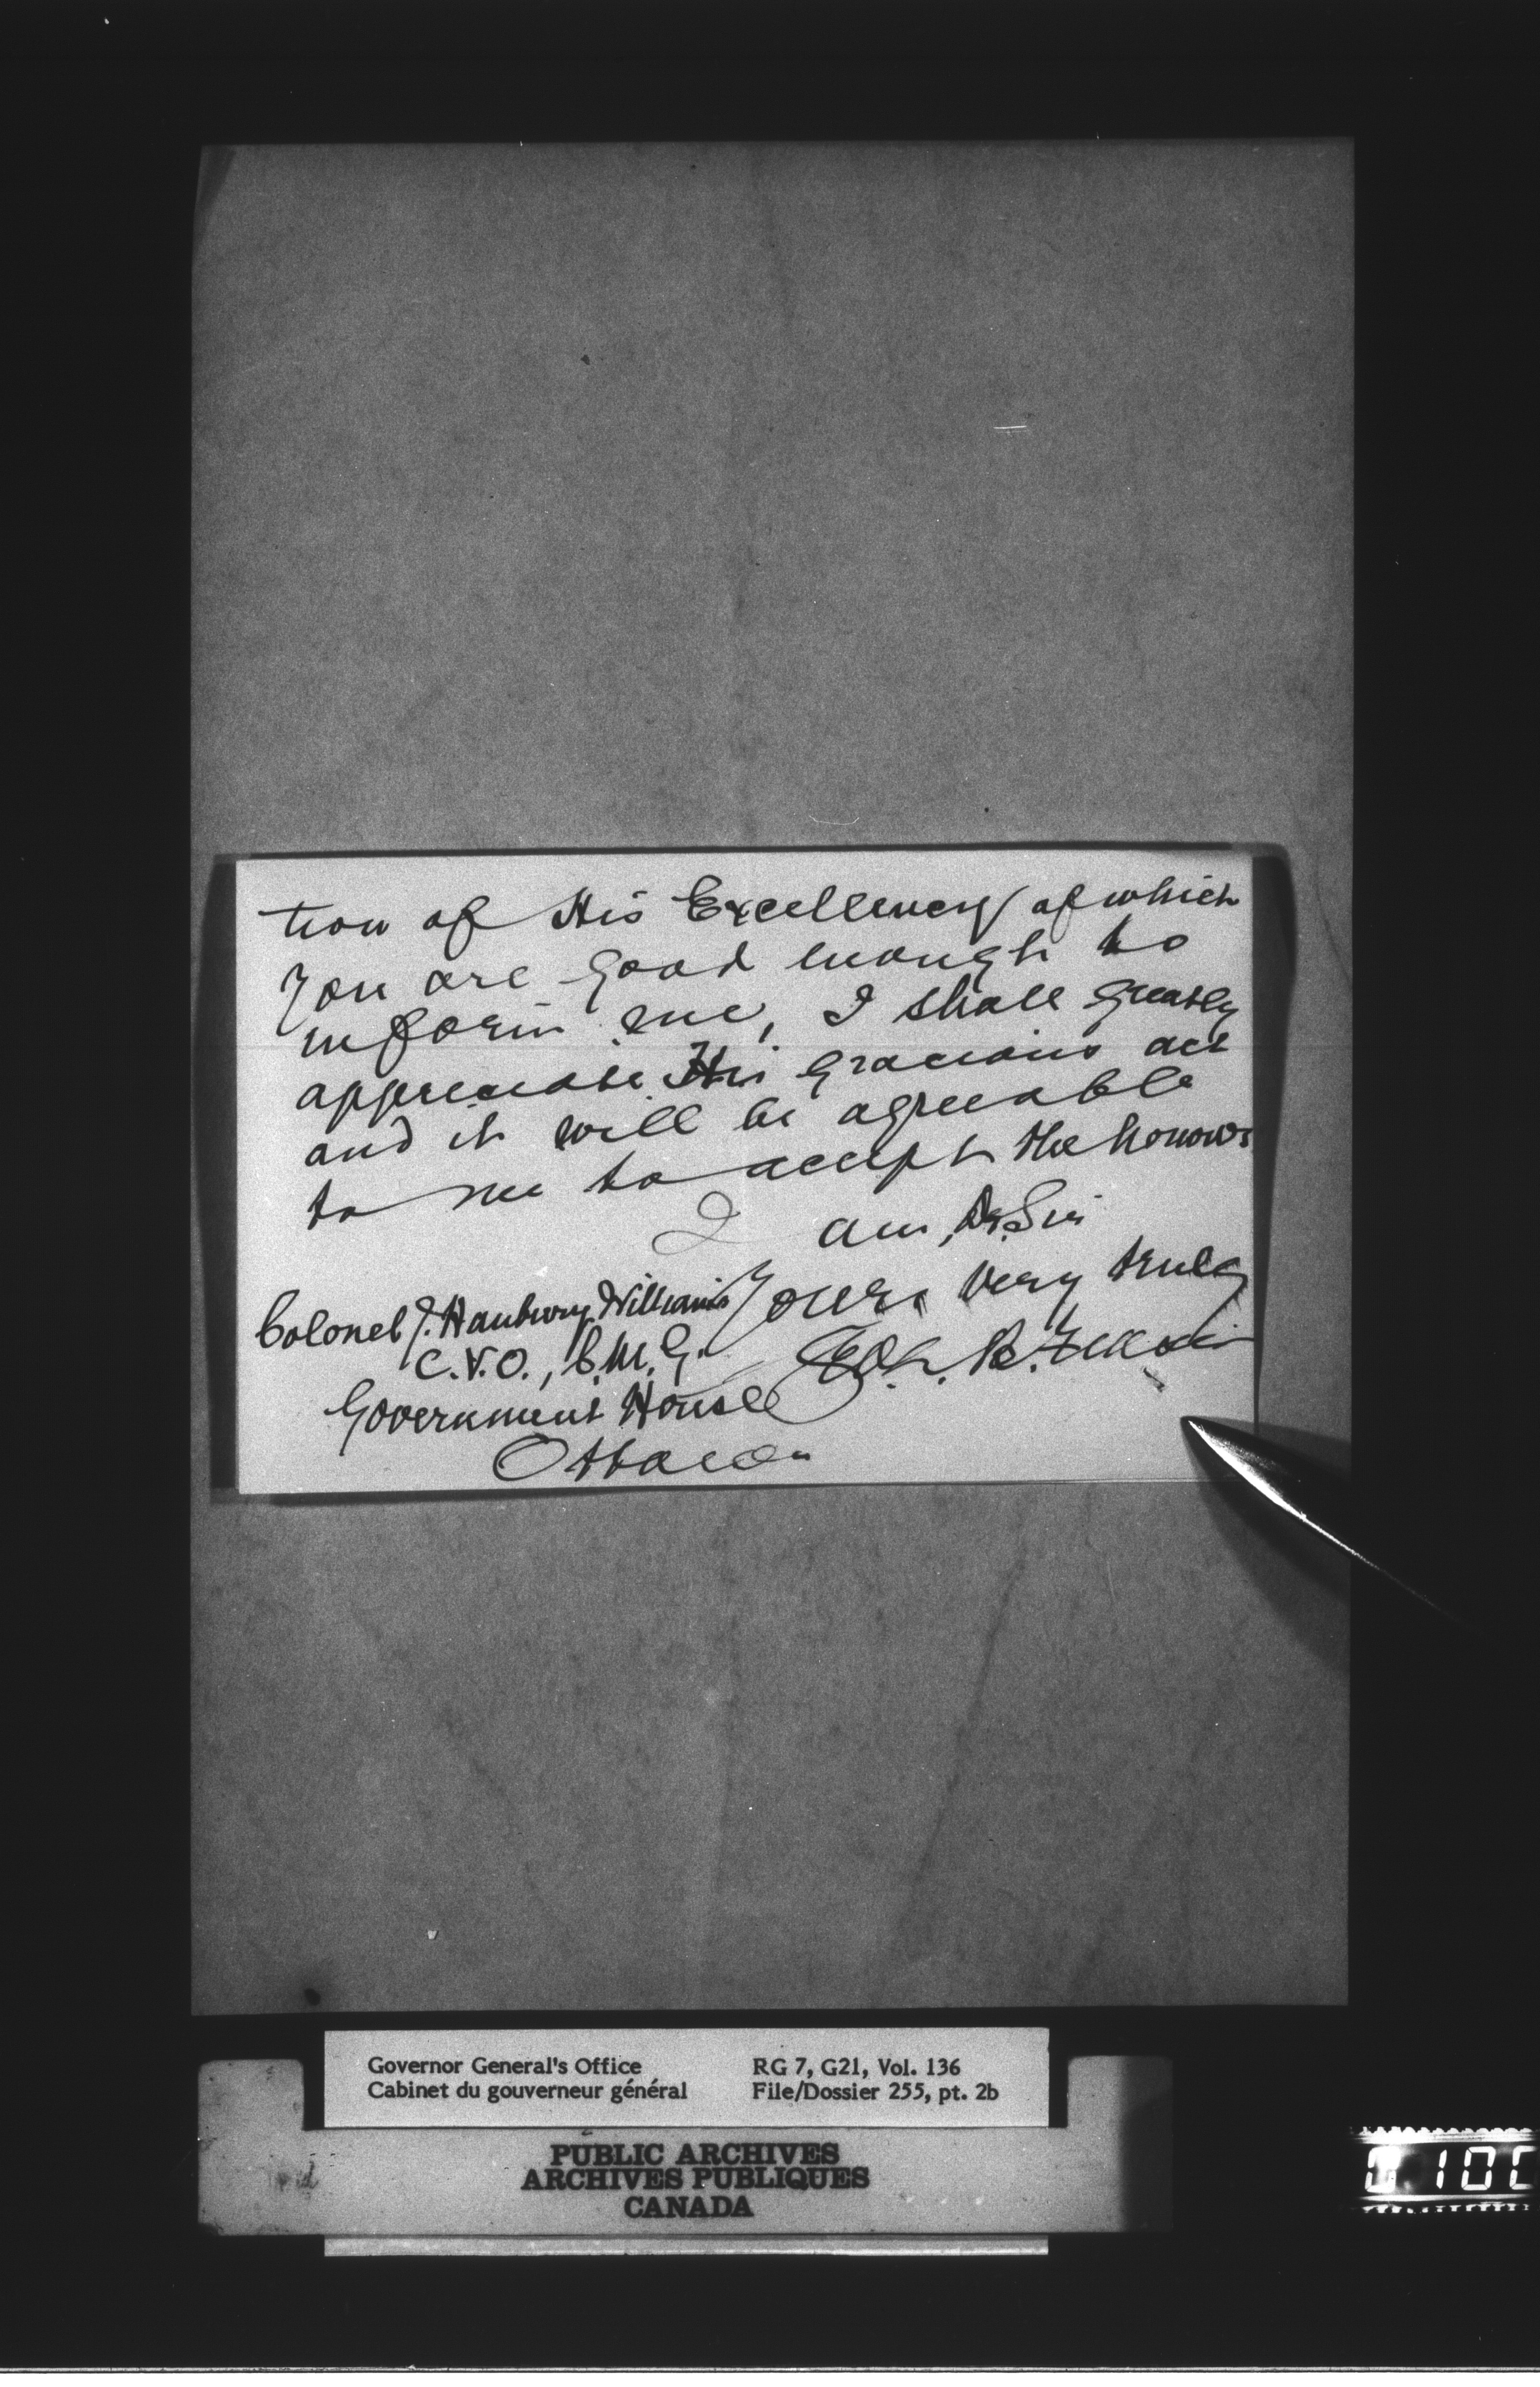 tion of His Excellency of which
you are good enough to
inform me, I shall greatly
appreciate His gracious act
and it will be agreeable
to me to accept the honour
I am, Dr. Sir
Yours very truly
Colonel J. Hanbury Williams
C.V.O., C.M.G.
Government House
Ottawa
Governor General's Office
Cabinet du gouverneur général
RG 7, G21, Vol. 136
File/Dossier 255, pt. 2b
PUBLIC ARCHIVES
ARCHIVES PUBLIQUES
CANADA